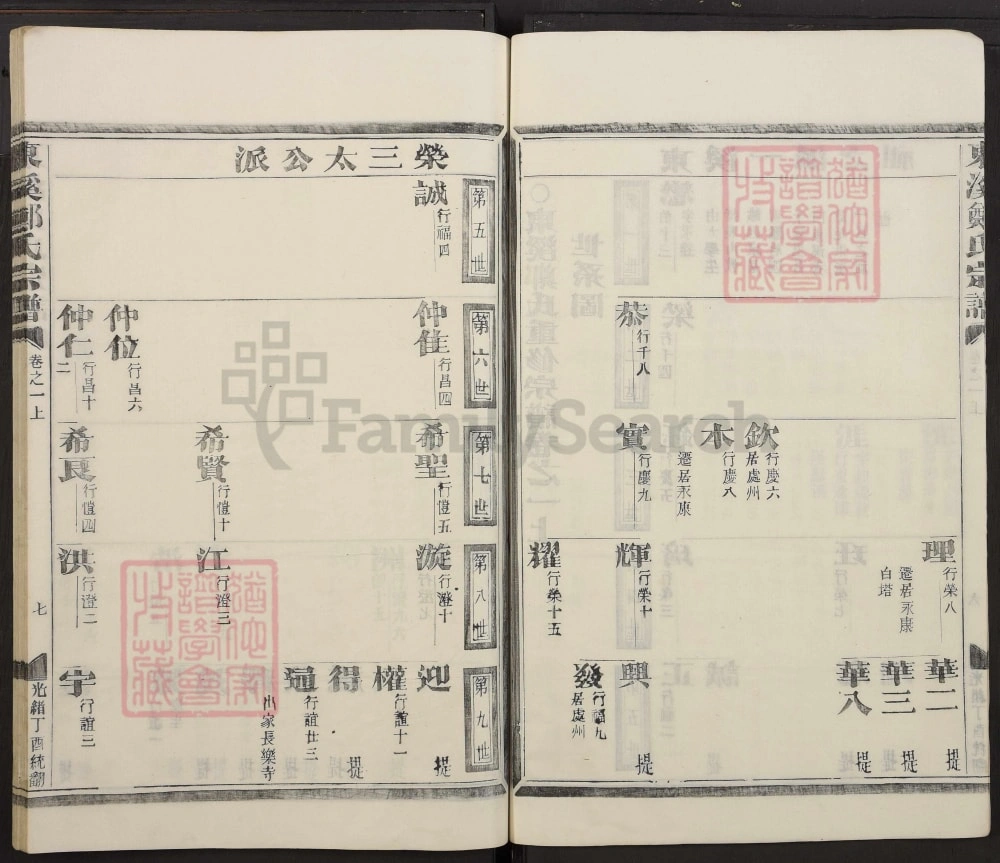 東溪鄭氏宗譜
恭 行千八
欽 行慶六 居處州
木 行慶八 遷居永康
實 行慶九
理 行榮八 遷居永康 白塔
輝 行榮十
耀 行榮十五
華二 提
華三 提
華八 提
興 提
發 行福九 居處州
榮三太公派
第五世
誠 行福四
第六世
仲佳 行昌四
仲位 行昌六
仲仁 行昌十二
第七世
希聖 行愷五
希賢 行愷十
希良 行愷四
第八世
漩 行澄十
江 行澄三
洪 行澄二
第九世
迎 提
權 行誼十一
得 提
通 行誼廿三 出家長樂寺
宇 行誼三
東溪鄭氏宗譜
卷之一上
七
光緒丁酉統翻
FamilySearch